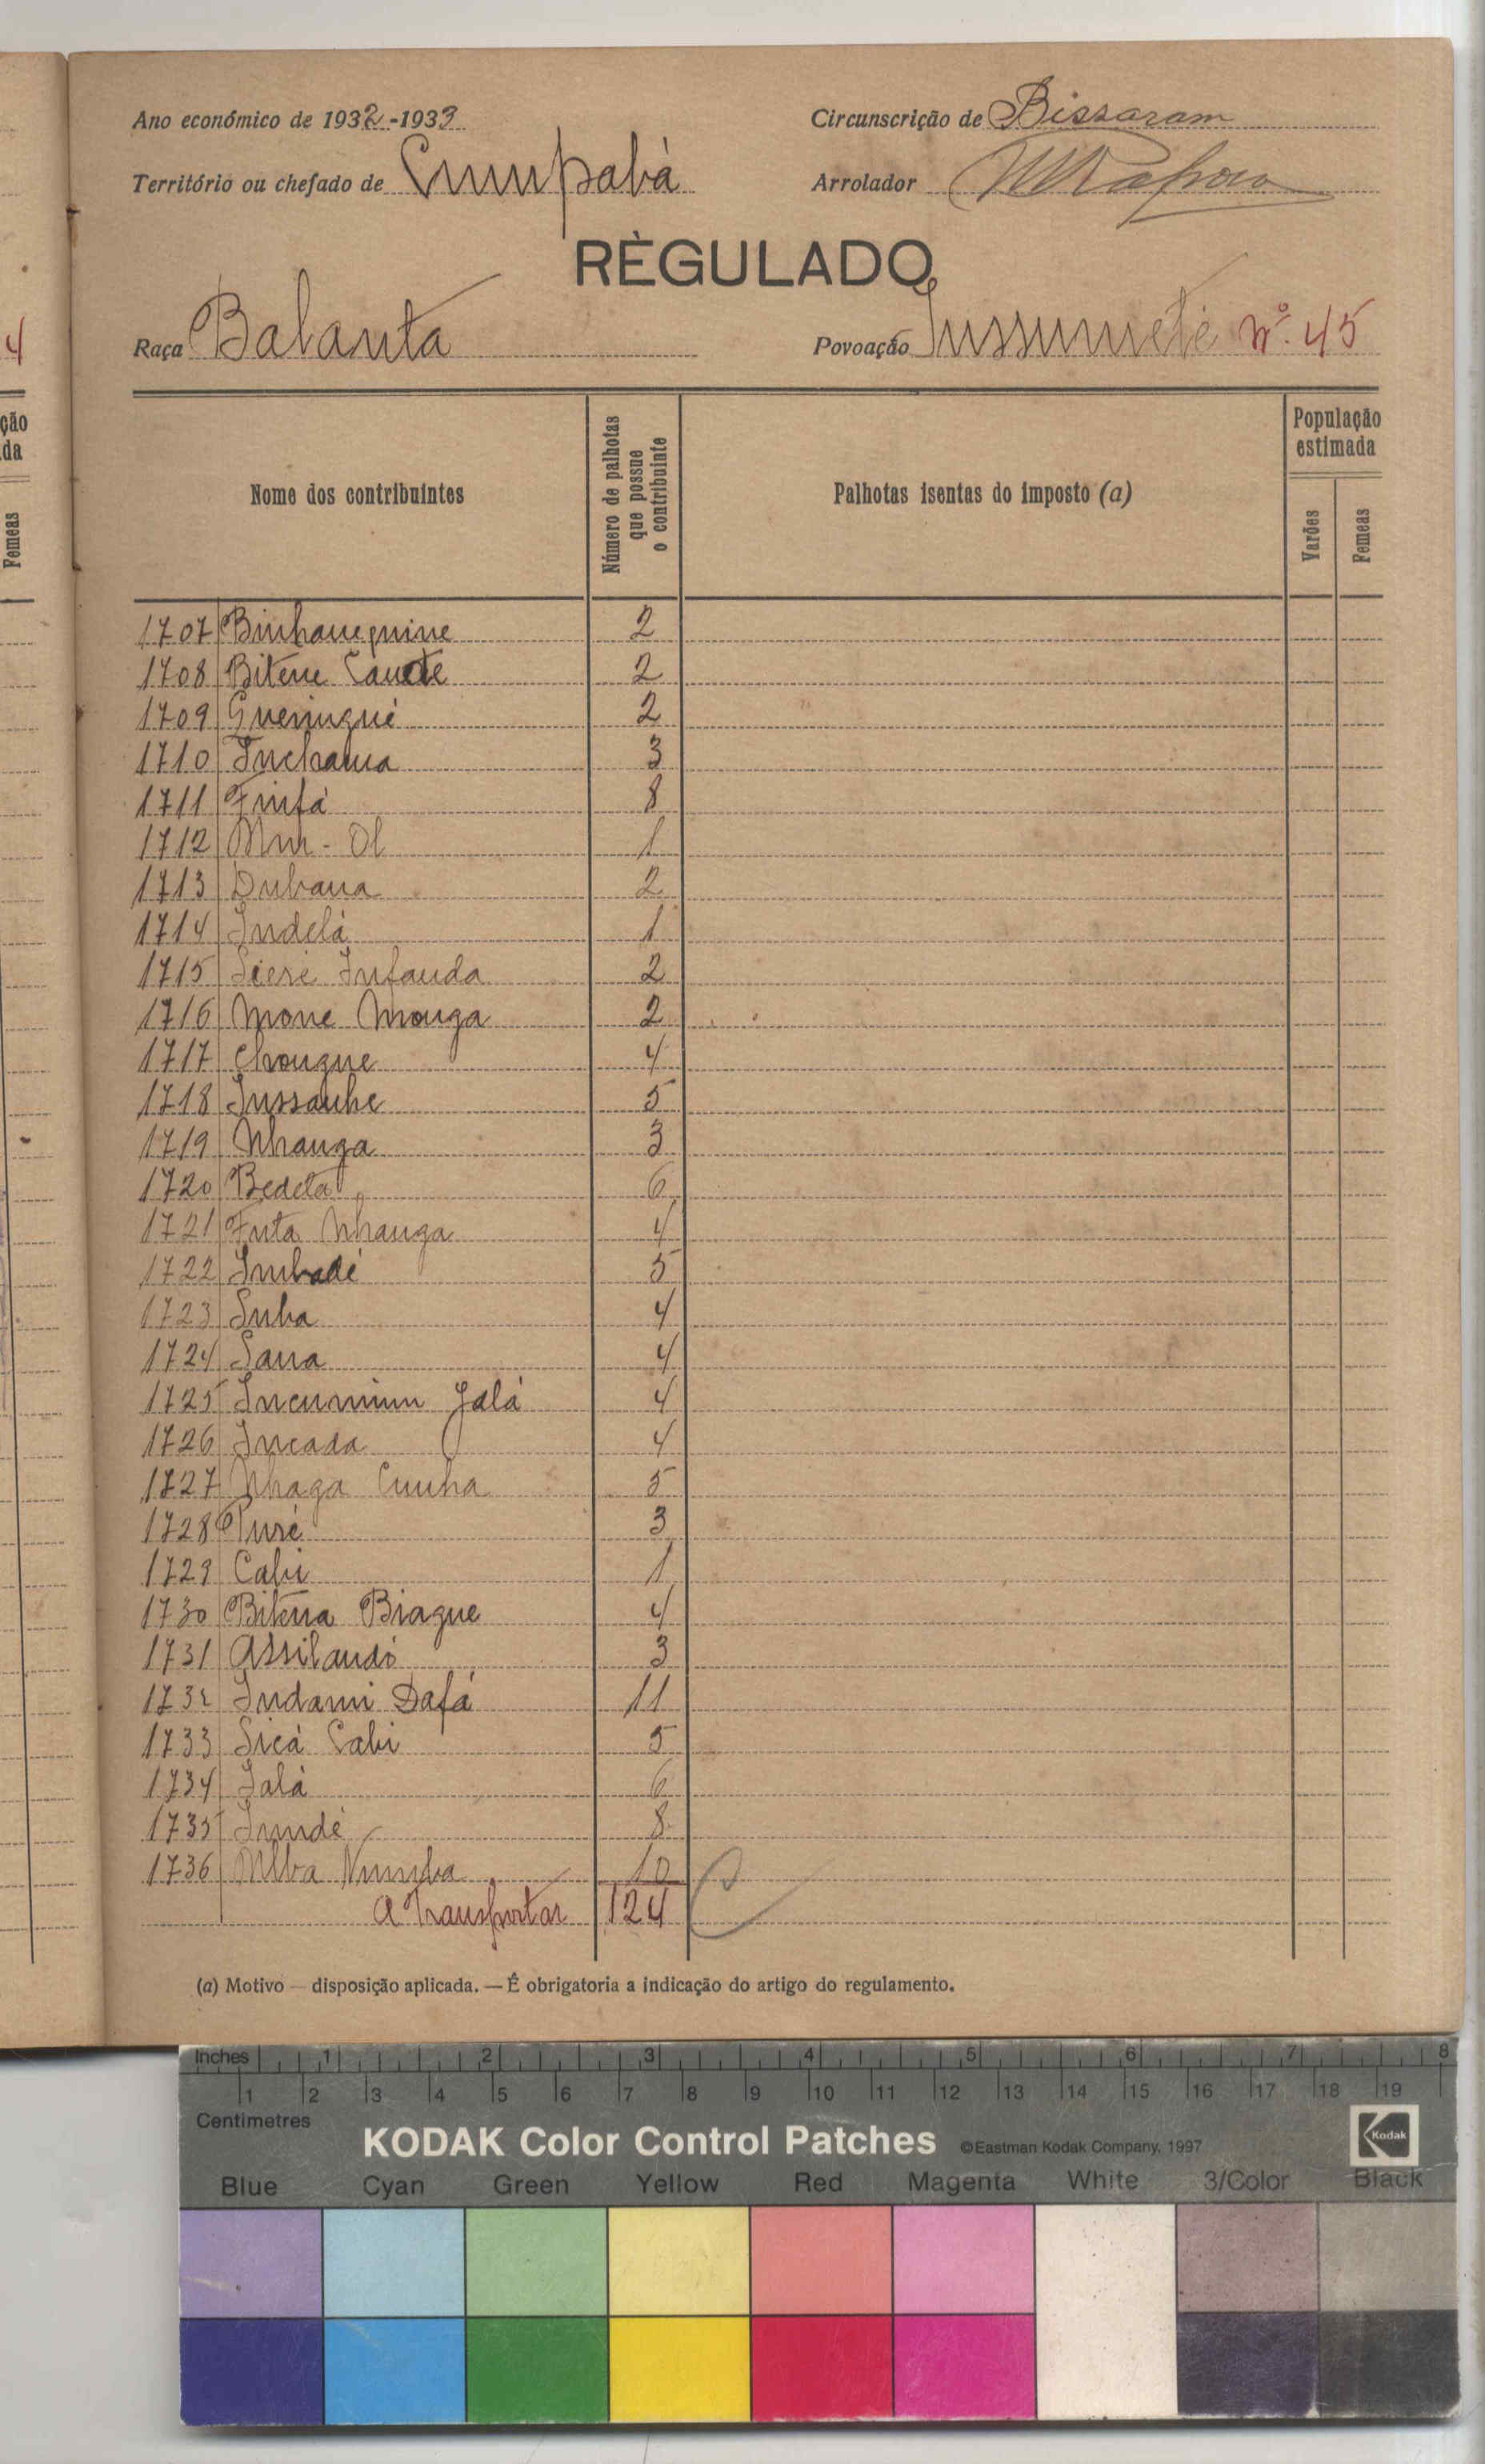 Ano económico de 1932-1933
Circunscrição de Bissoram
Território ou chefado de Cumpabá
Arrolador
RÈGULADO
Raça Balanta
Povoação Inssumeté Nº. 45
Nome dos contribuintes
Número de palhotas que possue o contribuinte
Palhotas isentas do imposto (a)
População estimada
Varões
Femeas
1707 Binhanequine 2
1708 Bitene Canote 2
1709 2
1710 Inchama 3
1711 Finfá 8
1712 Mm - Ol 1
1713 Duhana 2
1714 Indelá 1
1715 Sieré Infanda 2
1716 Mone Monga 2
1717 Chongue 4
1718 Inssanhe 5
1719 Nhanga 3
1720 Bedeta 6
1721 Futa Nhanga 4
1722 Imbadé 5
1723 Suha 4
1724 Sana 4
1725 Incumum Jalá 4
1726 Incada 4
1727 Nhaga Cunha 5
1728 Turé 3
1729 Cabi 1
1730 Bitena Biague 4
1731 Assilandó 3
1732 Indami Dafá 11
1733 Sicá Cabi 5
1734 Jalá 6
1735 Imndé 8
1736 Mbba Numba 10
A Transportar 124
(a) Motivo — disposição aplicada. — É obrigatoria a indicação do artigo do regulamento.
4
ção
da
Femeas
Inches 1 2 3 4 5 6 7 8
1 2 3 4 5 6 7 8 9 10 11 12 13 14 15 16 17 18 19
Centimetres
KODAK Color Control Patches ©Eastman Kodak Company, 1997 Kodak
Blue Cyan Green Yellow Red Magenta White 3/Color Black